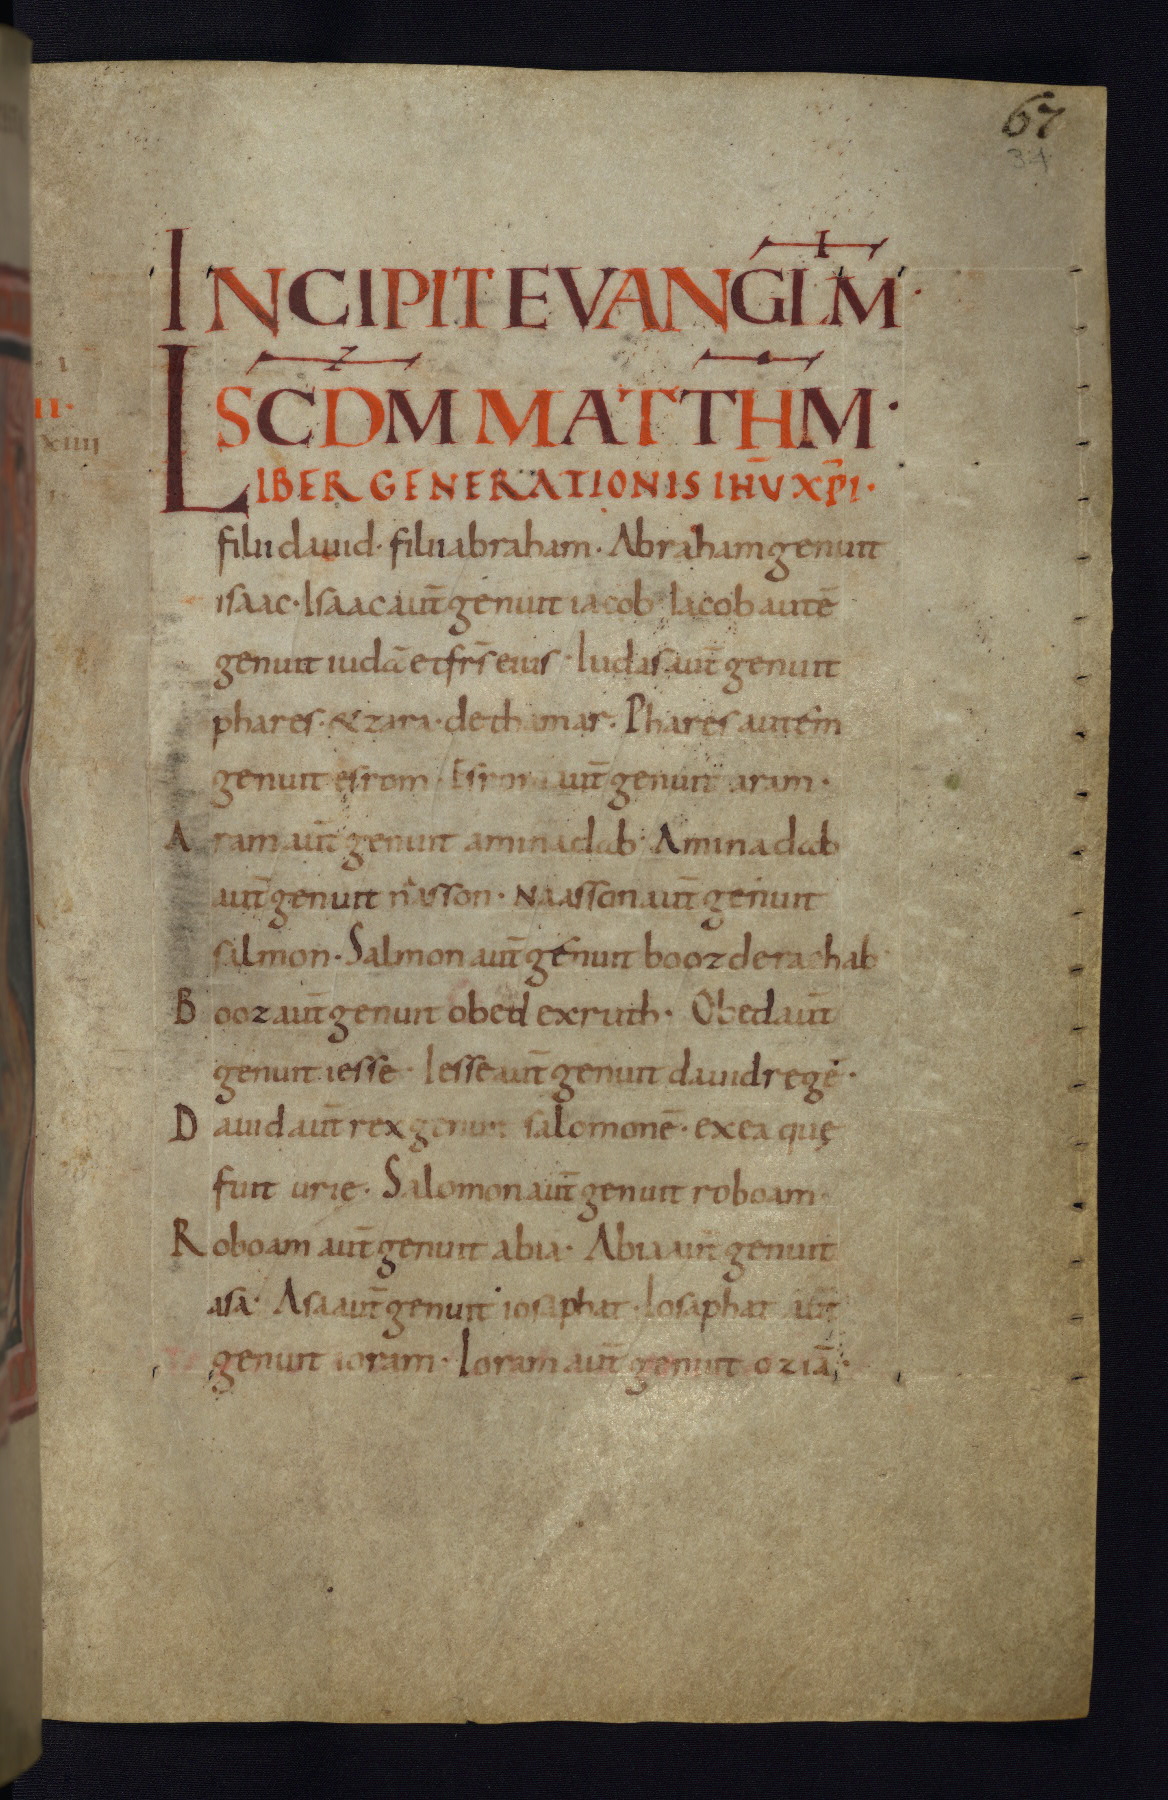 67
34
INCIPIT EVANGLM·
SCDM MATTHM·
LIBER GENERATIONIS IHŪ XP̄I·
filii dauid· filii abraham· Abraham genuit
isaac· Isaac aut̄ genuit iacob· Iacob autē
genuit iudā et frs̄ eius· Iudas aut̄ genuit
phares· & zara· de thamar· Phares autem
genuit esrom· Esrom aut̄ genuit aram·
Aram aut̄ genuit aminadab· Aminadab
aut̄ genuit naasson· Naasson aut̄ genuit
salmon· Salmon aut̄ genuit booz de rachab
Booz aut̄ genuit obed ex ruth· Obed aut̄
genuit iesse· Iesse aut̄ genuit dauid regē·
Dauid aut̄ rex genuit salomonē· ex ea quę
fuit urie· Salomon aut̄ genuit roboam·
Roboam aut̄ genuit abia· Abia aut̄ genuit
asa· Asa aut̄ genuit iosaphat· Iosaphat aut̄
genuit ioram· Ioram aut̄ genuit oziā·
II·
XIIII